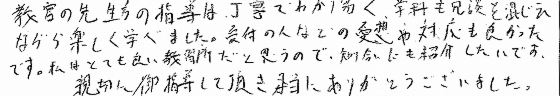 教官の先生方の指導は、丁寧でわかり易く、学科も冗談を混じえ
ながら楽しく学べました。受付の人などの愛想や対応も良かった
です。私はとても良い教習所だと思うので、知合いにも紹介したいです。
親切に御指導して頂き本当にありがとうございました。